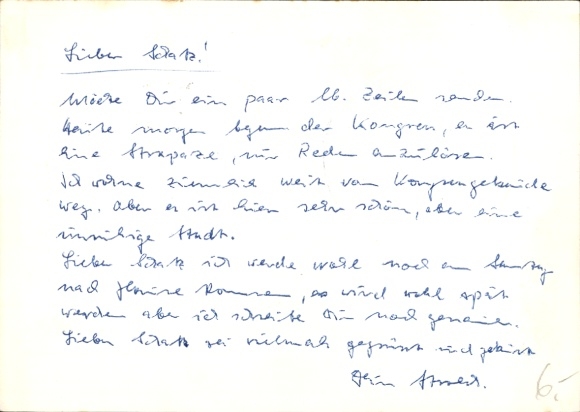 Lieber Schatz!
Möchte Dir ein paar lb. Zeilen senden.
Heute morgen begann der Kongress, es ist
eine Strapaze, nur Reden anzuhören.
Ich wohne ziemlich weit vom Kongressgebäude
weg. Aber es ist hier sehr schön, aber eine
unruhige Stadt.
Lieber Schatz ich werde wohl noch am Samstag
nach Hause kommen, es wird wohl spät
werden aber ich schreibe Dir noch genauer.
Lieber Schatz sei vielmals gegrüsst und geküsst
Dein
6.-